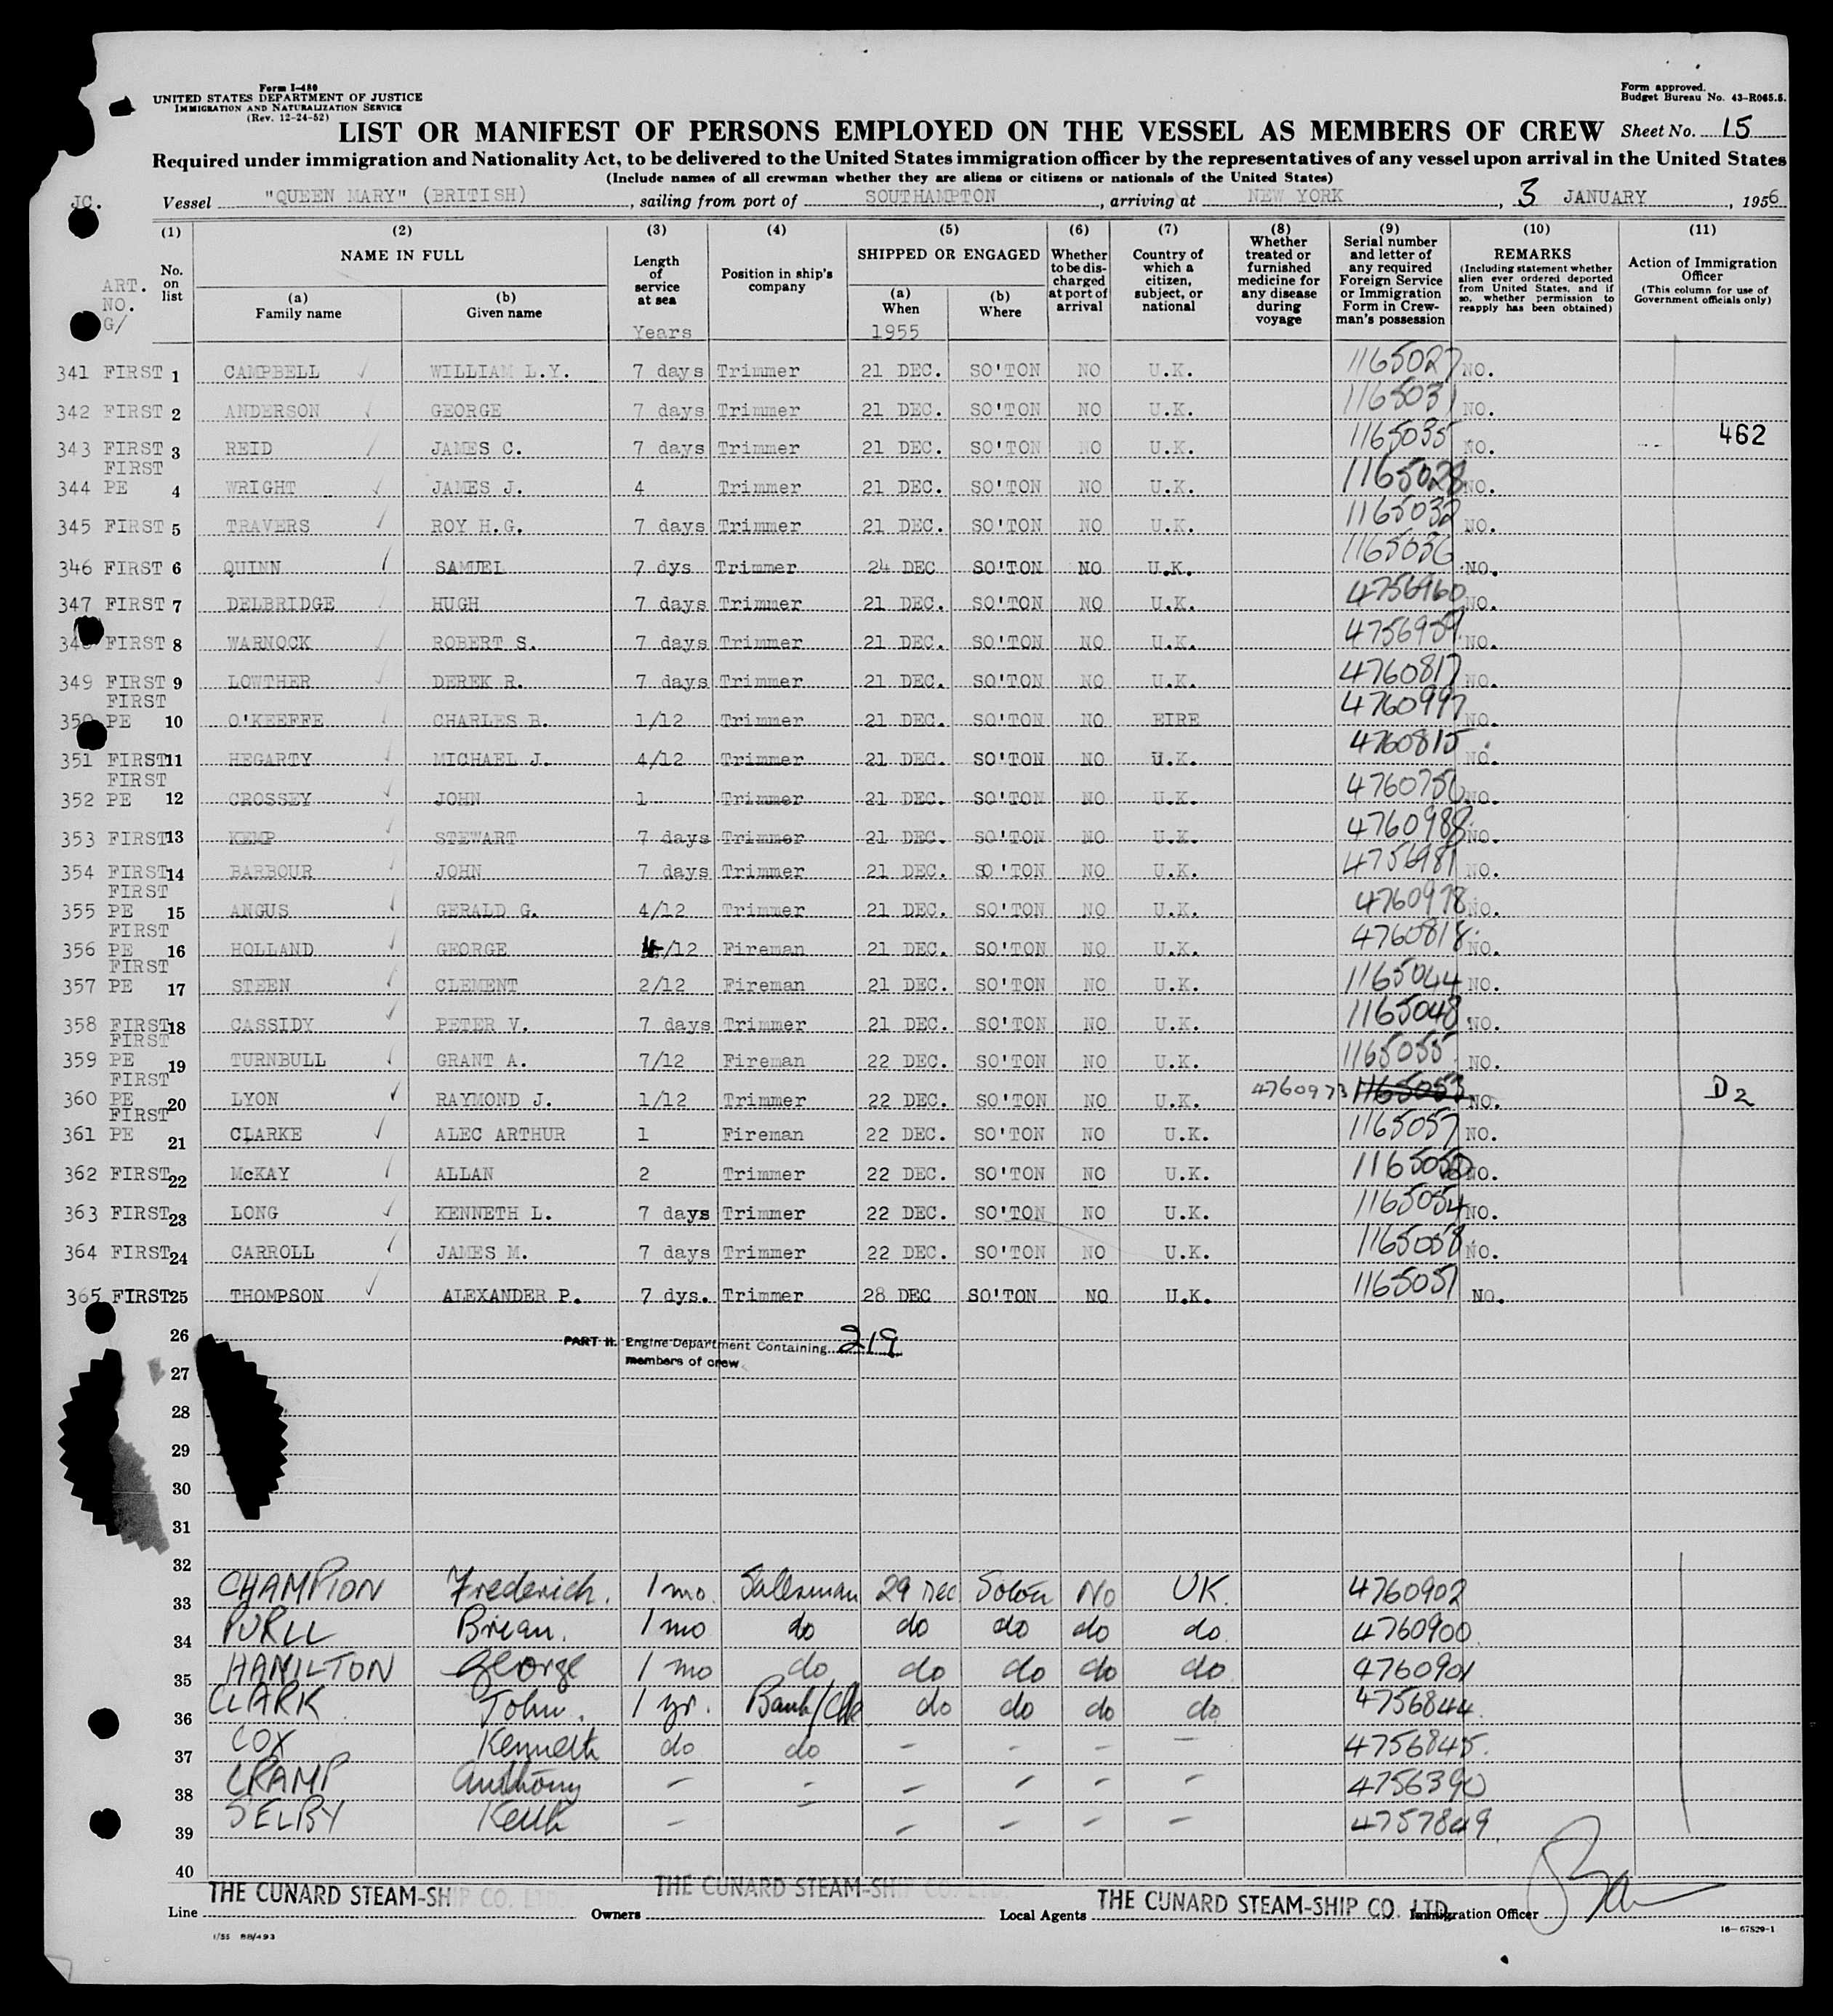 Form I-480
UNITED STATES DEPARTMENT OF JUSTICE
IMMIGRATION AND NATURALIZATION SERVICE
(Rev. 12-24-52)
Form approved.
Budget Bureau No. 43-R065.5.
LIST OR MANIFEST OF PERSONS EMPLOYED ON THE VESSEL AS MEMBERS OF CREW Sheet No. 15
Required under immigration and Nationality Act, to be delivered to the United States immigration officer by the representatives of any vessel upon arrival in the United States
(Include names of all crewman whether they are aliens or citizens or nationals of the United States)
JC. Vessel "QUEEN MARY" (BRITISH), sailing from port of SOUTHAMPTON, arriving at NEW YORK, 3 JANUARY, 1956
(1) (2) (3) (4) (5) (6) (7) (8) (9) (10) (11)
ART. NO. G/ No. on list NAME IN FULL (a) Family name (b) Given name Length of service at sea Years Position in ship's company SHIPPED OR ENGAGED (a) When 1955 (b) Where Whether to be discharged at port of arrival Country of which a citizen, subject, or national Whether treated or furnished medicine for any disease during voyage Serial number and letter of any required Foreign Service or Immigration Form in Crewman's possession REMARKS (Including statement whether alien ever ordered deported from United States, and if so, whether permission to reapply has been obtained) Action of Immigration Officer (This column for use of Government officials only)
341 FIRST 1 CAMPBELL WILLIAM L.Y. 7 days Trimmer 21 DEC. SO'TON NO U.K. 1165027 NO.
342 FIRST 2 ANDERSON GEORGE 7 days Trimmer 21 DEC. SO'TON NO U.K. 1165031 NO.
343 FIRST 3 REID JAMES C. 7 days Trimmer 21 DEC. SO'TON NO U.K. 1165035 NO. 462
344 FIRST PE 4 WRIGHT JAMES J. 4 Trimmer 21 DEC. SO'TON NO U.K. 1165028 NO.
345 FIRST 5 TRAVERS ROY H.G. 7 days Trimmer 21 DEC. SO'TON NO U.K. 1165032 NO.
346 FIRST 6 QUINN SAMUEL 7 dys Trimmer 24 DEC SO'TON NO U.K. 1165036 NO.
347 FIRST 7 DELBRIDGE HUGH 7 days Trimmer 21 DEC. SO'TON NO U.K. 4756960 NO.
348 FIRST 8 WARNOCK ROBERT S. 7 days Trimmer 21 DEC. SO'TON NO U.K. 4756959 NO.
349 FIRST 9 LOWTHER DEREK R. 7 days Trimmer 21 DEC. SO'TON NO U.K. 4760817 NO.
350 FIRST PE 10 O'KEEFFE CHARLES B. 1/12 Trimmer 21 DEC. SO'TON NO EIRE 4760997 NO.
351 FIRST 11 HEGARTY MICHAEL J. 4/12 Trimmer 21 DEC. SO'TON NO U.K. 4760815 NO.
352 FIRST PE 12 CROSSEY JOHN 1 Trimmer 21 DEC. SO'TON NO U.K. 4760756 NO.
353 FIRST 13 KEMP STEWART 7 days Trimmer 21 DEC. SO'TON NO U.K. 4760988 NO.
354 FIRST 14 BARBOUR JOHN 7 days Trimmer 21 DEC. SO'TON NO U.K. 4756981 NO.
355 FIRST PE 15 ANGUS GERALD G. 4/12 Trimmer 21 DEC. SO'TON NO U.K. 4760978 NO.
356 FIRST PE 16 HOLLAND GEORGE 4/12 Fireman 21 DEC. SO'TON NO U.K. 4760818 NO.
357 FIRST PE 17 STEEN CLEMENT 2/12 Fireman 21 DEC. SO'TON NO U.K. 1165044 NO.
358 FIRST 18 CASSIDY PETER V. 7 days Trimmer 21 DEC. SO'TON NO U.K. 1165048 NO.
359 FIRST PE 19 TURNBULL GRANT A. 7/12 Fireman 22 DEC. SO'TON NO U.K. 1165055 NO.
360 FIRST PE 20 LYON RAYMOND J. 1/12 Trimmer 22 DEC. SO'TON NO U.K. 4760973 1165053 NO. D2
361 FIRST PE 21 CLARKE ALEC ARTHUR 1 Fireman 22 DEC. SO'TON NO U.K. 1165057 NO.
362 FIRST 22 McKAY ALLAN 2 Trimmer 22 DEC. SO'TON NO U.K. NO.
363 FIRST 23 LONG KENNETH L. 7 days Trimmer 22 DEC. SO'TON NO U.K. 1165054 NO.
364 FIRST 24 CARROLL JAMES M. 7 days Trimmer 22 DEC. SO'TON NO U.K. 1165058 NO.
365 FIRST 25 THOMPSON ALEXANDER P. 7 dys. Trimmer 28 DEC SO'TON NO U.K. 1165051 NO.
26 PART II. Engine Department Containing 219
members of crew
27
28
29
30
31
32
33 CHAMPION Frederick. 1 mo. Salesman 29 Dec Soton No UK. 4760902
34 PURLL Brian. 1 mo do do do do do 4760900
35 HAMILTON George 1 mo do do do do do 4760901
36 CLARK John. 1 yr. Bank/Clk do do do do 4756844
37 COX Kenneth do do - - - - 4756845.
38 CRAMP Anthony - - - - - - 4756390
39 SELBY Keith - - - - - - 4757849.
40
Line THE CUNARD STEAM-SHIP CO. LTD. Owners THE CUNARD STEAM-SHIP CO. LTD. Local Agents THE CUNARD STEAM-SHIP CO. LTD. Immigration Officer
1/55 BB/493
16-67829-1